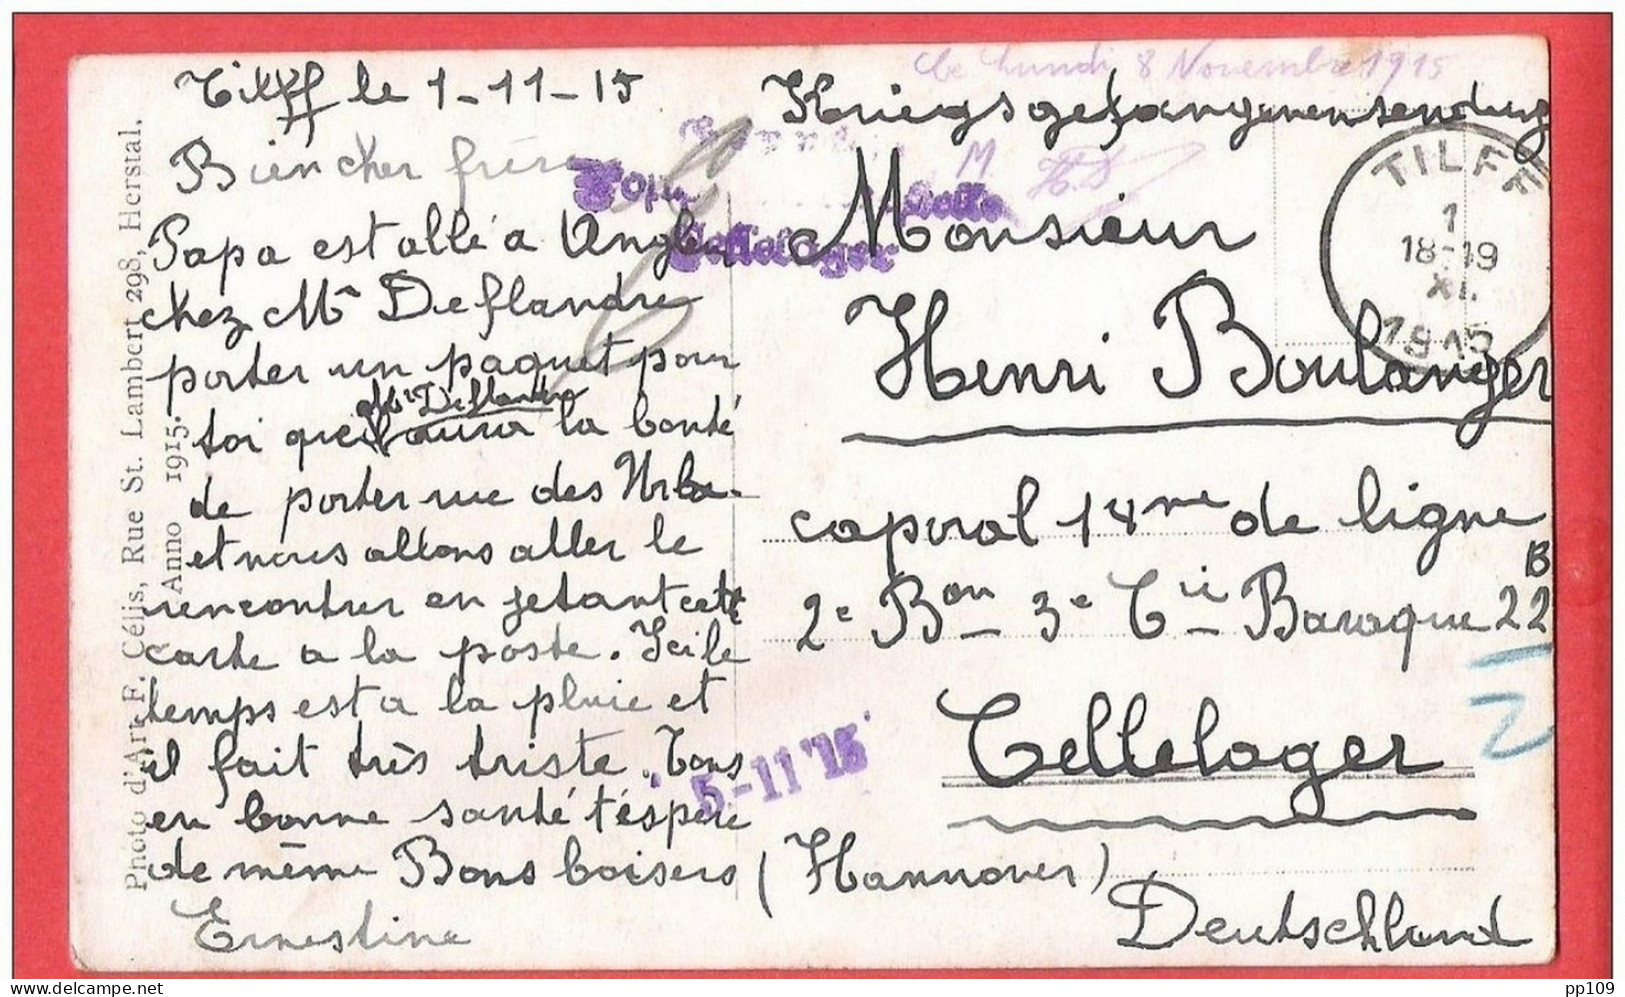 Le Lundi 8 Novembre 1915
Tilff le 1-11-15
Bien cher frère
Papa est allé a Angleur
chez Mr Deflandre
porter un paquet pour
Mr Deflandre
toi que aura la bonté
de porter rue des Urba.
et nous allons aller le
rencontrer en jetant cette
carte a la poste. Ici le
temps est a la pluie et
il fait très triste. Tous
en bonne santé t'éspère
de même Bons baisers
Ernestine
Kriegsgefangenensendung
Monsieur
Henri Boulanger
caporal 14me de ligne
2e Bon 3e Cie Baraque 22 B
Cellelager
(Hannover)
Deutschland
TILFF
1
18-19
XI.
1915
Cellelager
5-11'15
M
Photo d'Art F. Célis, Rue St. Lambert 298, Herstal.
Anno 1915.
pp109